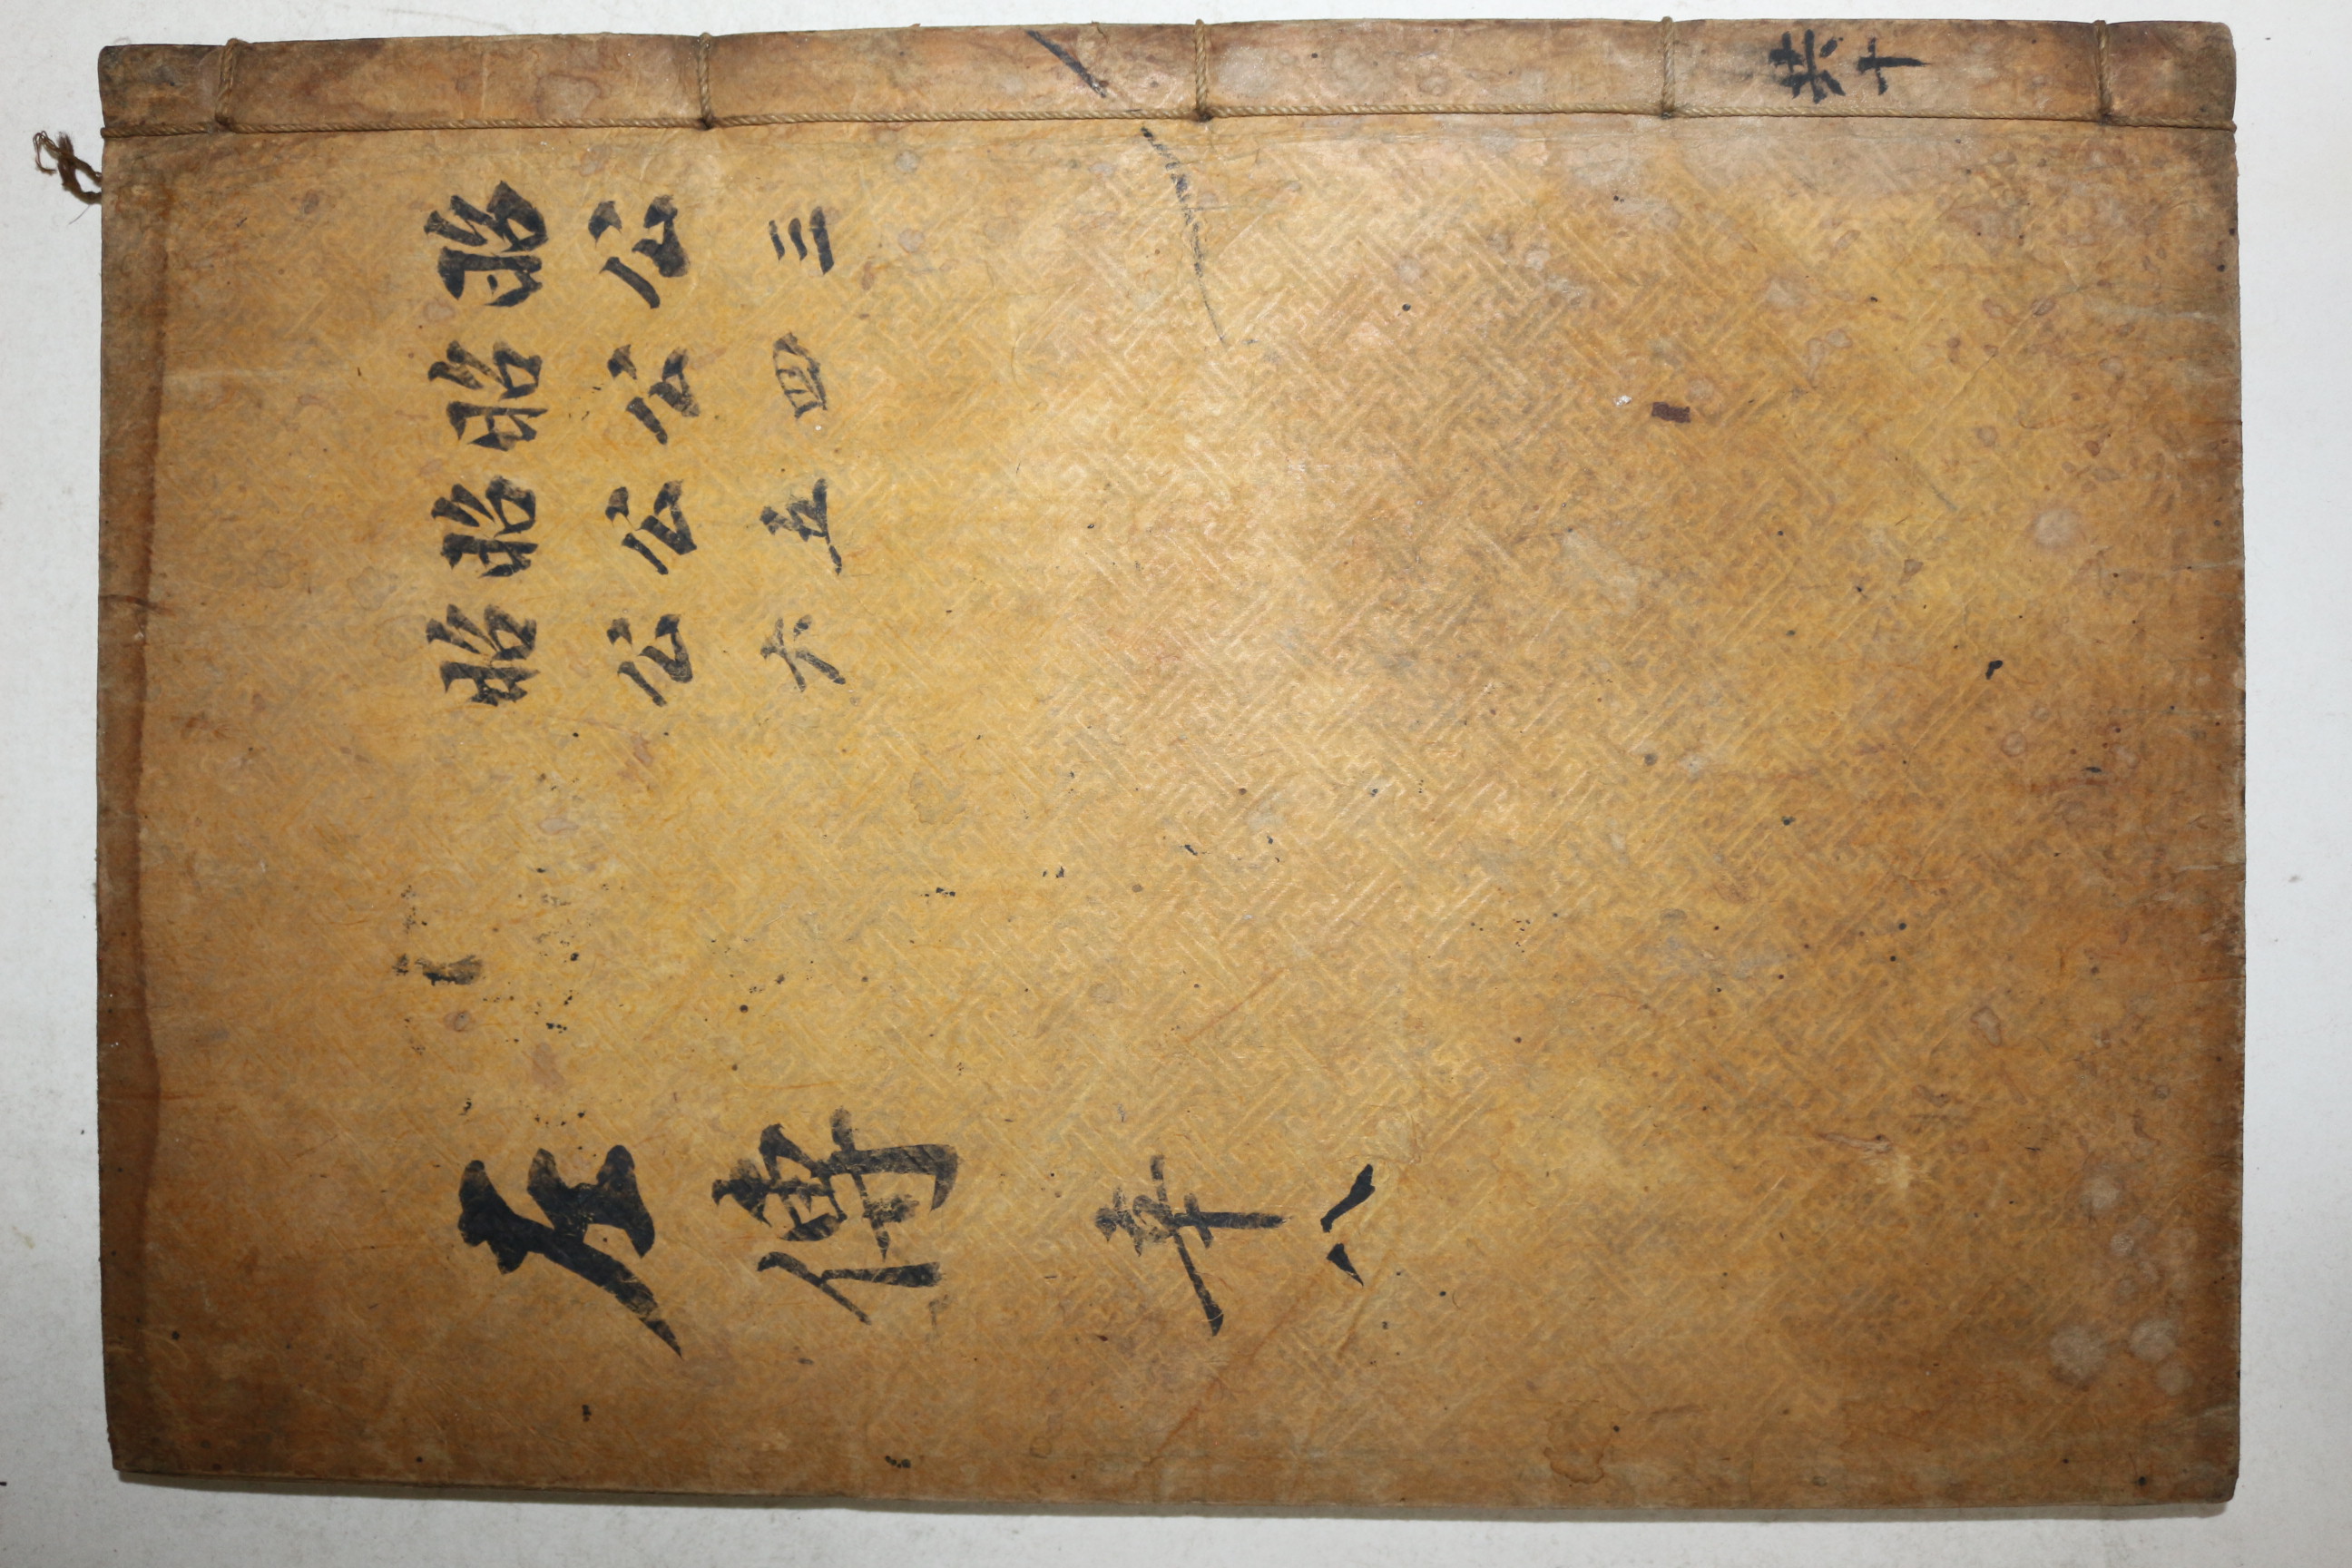 共十
昭公三
昭公四
昭公五
昭公六
左傳 辛八